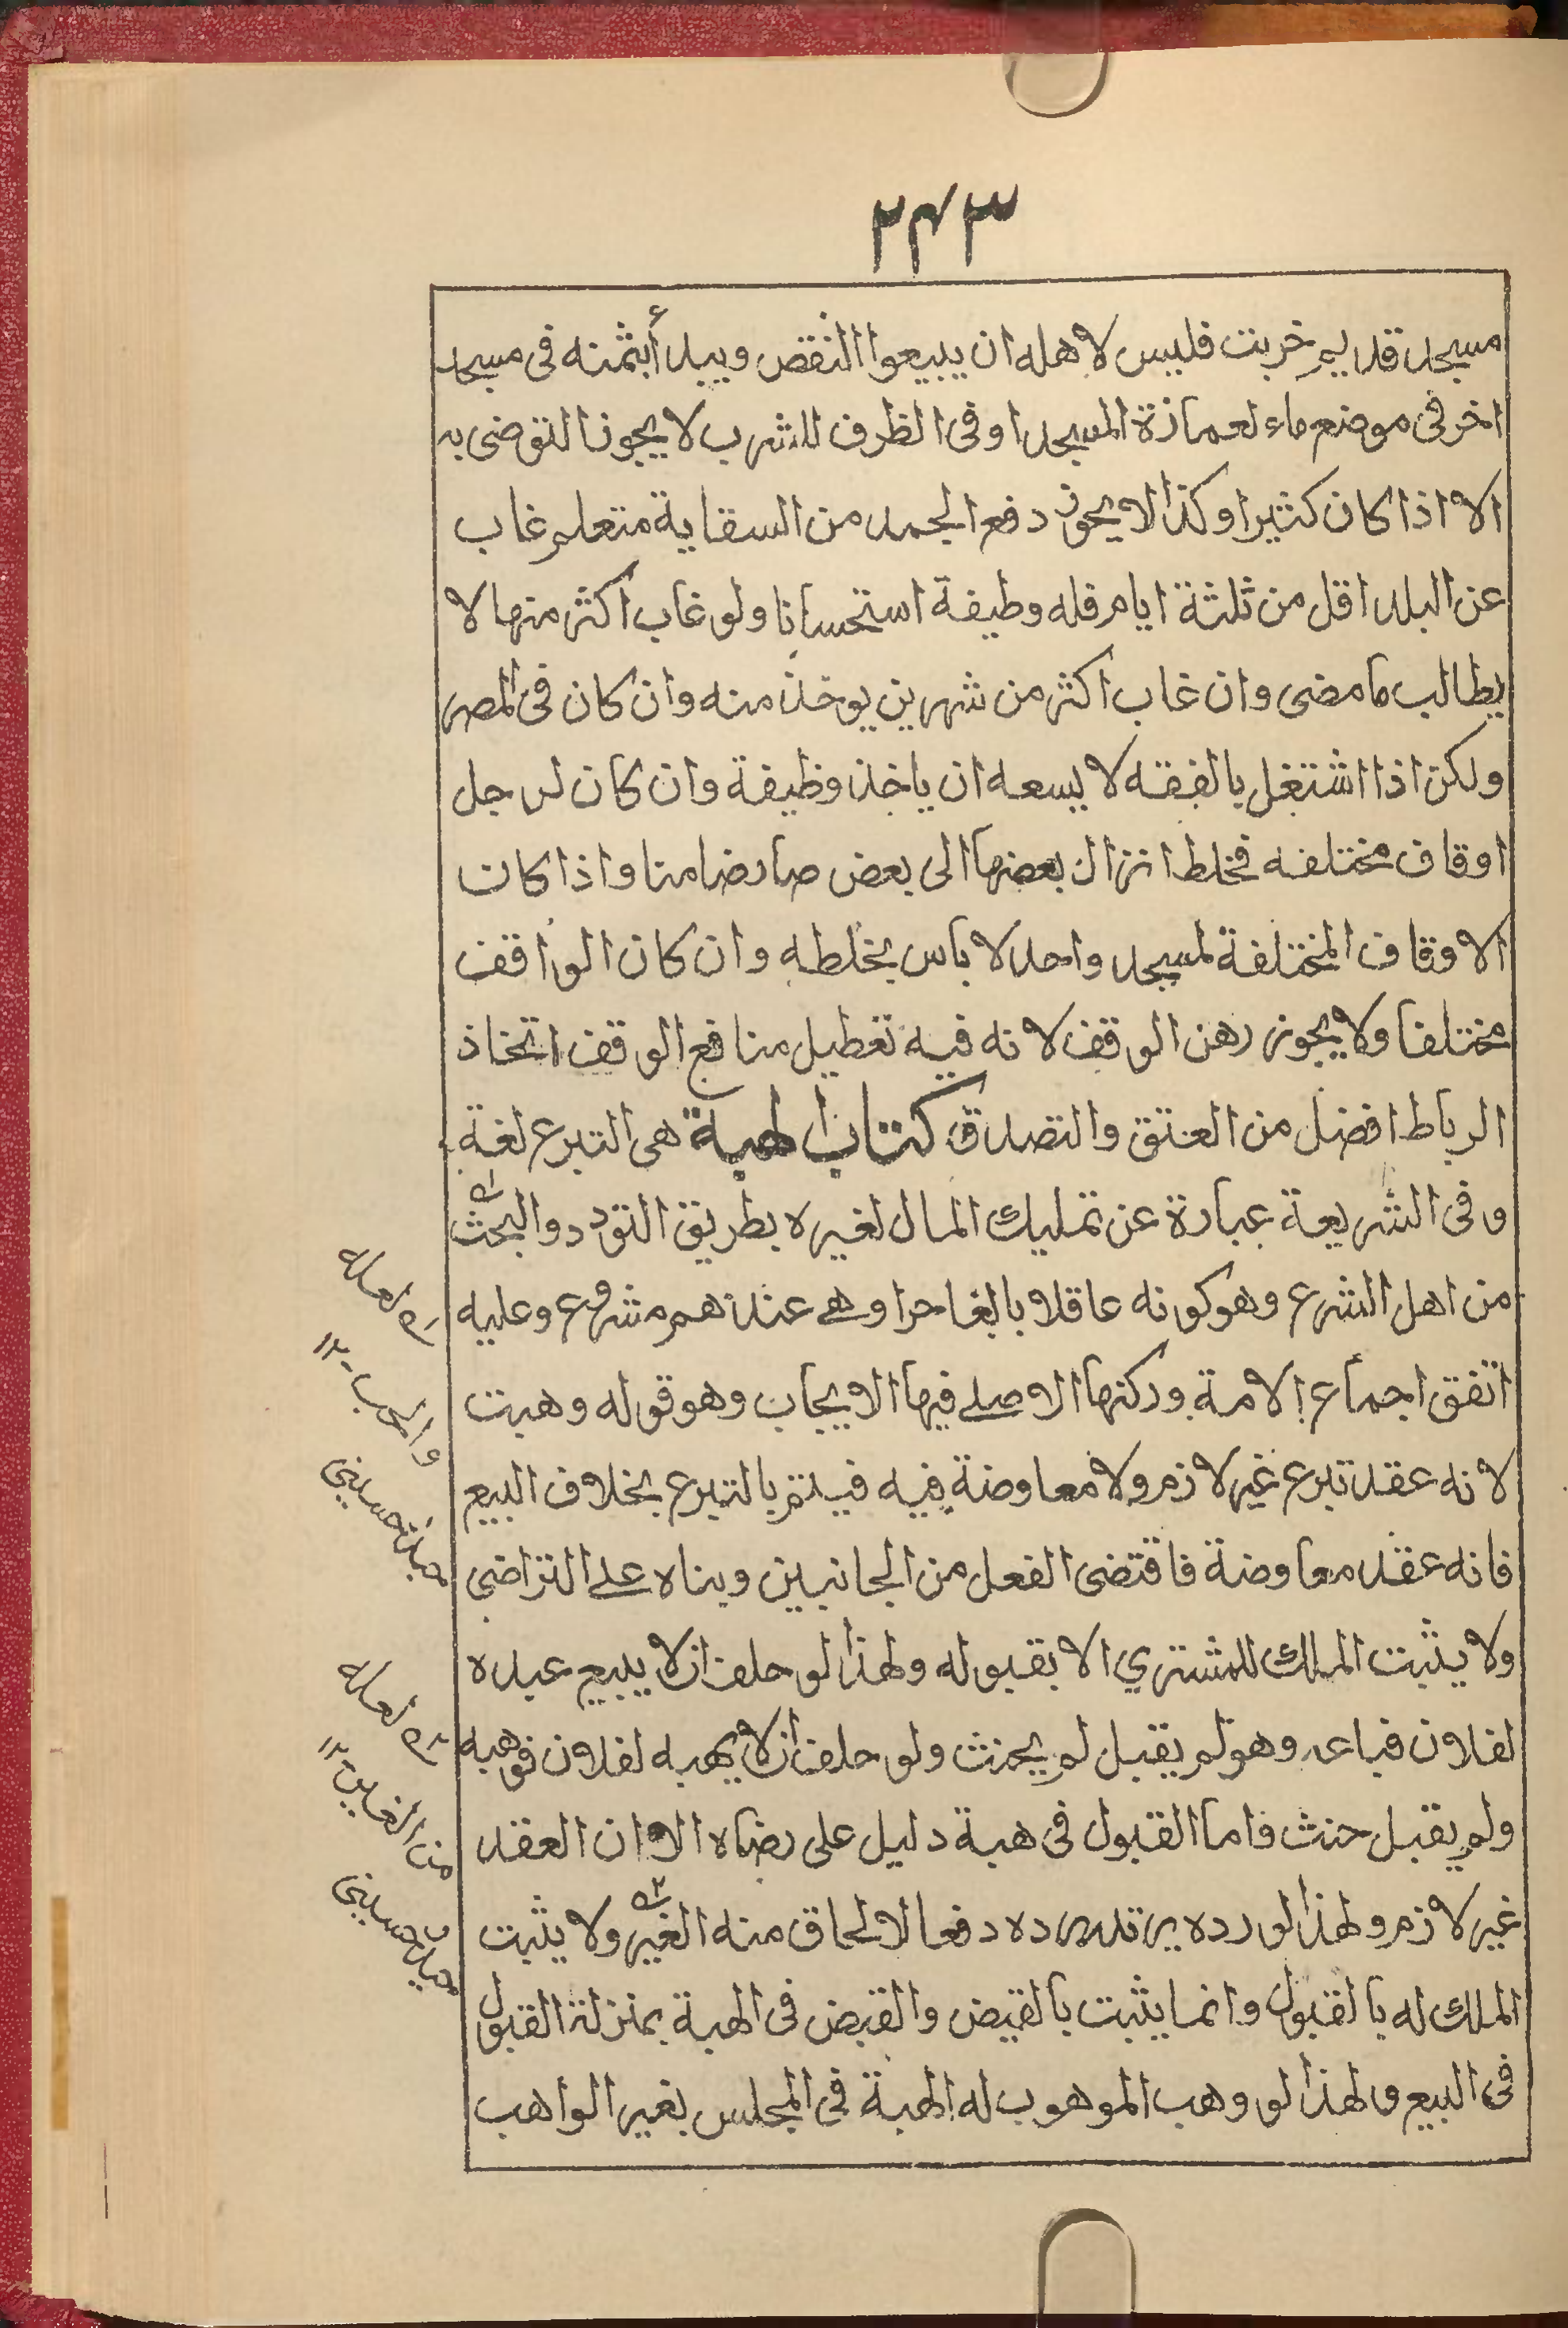 ۲۴۳
مسجد قديم خربت فليس لاهله ان يبيعوا النقص ويبدأ بثمنه فى مسجد
اخر فى موضع ماء لعمارة المسجد او فى الظرف للشرب لا يجوز التوضى به
الا اذا كان كثيرا وكذا لا يجوز دفع الجمد من السقاية متعلم غاب
عن البلد اقل من ثلثة ايام فله وظيفة استحسانا ولو غاب اكثر منها لا
يطالب ما مضى وان غاب اكثر من شهرين يوخذ منه وان كان فى المصر
ولكن اذا اشتغل بالفقه لا يسعه ان ياخذ وظيفة وان كان لرجل
اوقاف مختلفه فخلط انزال بعضها الى بعض صار ضامنا واذا كان
الاوقاف المختلفة لمسجد واحد لا باس بخلطه وان كان الواقف
مختلفا ولا يجوز رهن الوقف لانه فيه تعطيل منافع الوقف اتخاذ
الرباط افضل من العتق والتصدق كتاب الهبة هى التبرع لغة
وفى الشريعة عبارة عن تمليك المال لغيره بطريق التودد والبحث
من اهل الشرع وهو كونه عاقلا بالغا حرا وهے عندهم مشروع وعليه
اتفق اجماع الامة وركنها الاصلے فيها الايجاب وهو قوله وهبت
لانه عقد تبرع غير لازم ولا معاوضة فيه فيتم بالتبرع بخلاف البيع
فانه عقد معاوضة فاقتضى الفعل من الجانبين وبناه علے التراضى
ولا يثبت الملك للمشتري الا بقبوله ولهذا لو حلف ان لا يبيع عبده
لفلان فباعه وهو لم يقبل لم يحنث ولو حلف ان لا يهبه لفلان فوهبه
ولم يقبل حنث فاما القبول فى هبة دليل على رضاه الا ان العقد
غير لازم ولهذا لو رده يرتد رده دفعا لالحاق منه الغير ولا يثبت
الملك له بالقبول وانما يثبت بالقبض والقبض فى الهبة بمنزلة القبول
فى البيع ولهذا لو وهب الموهوب له الهبة فى المجلس بغير الواهب
لعله
والحب ۱۲
حسينى
لعله
من الغير ۱۲
حسينى